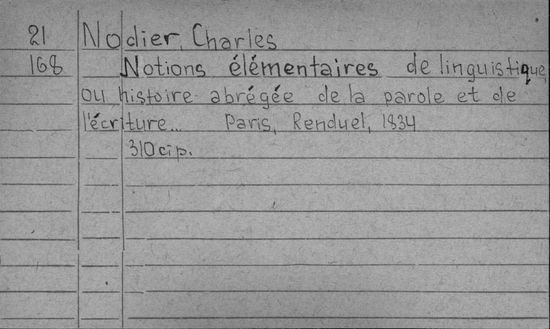 21 Nodier, Charles
168 Notions élémentaires de linguistique,
ou histoire abrégée de la parole et de
l'écriture... Paris, Renduel, 1834
310 p.